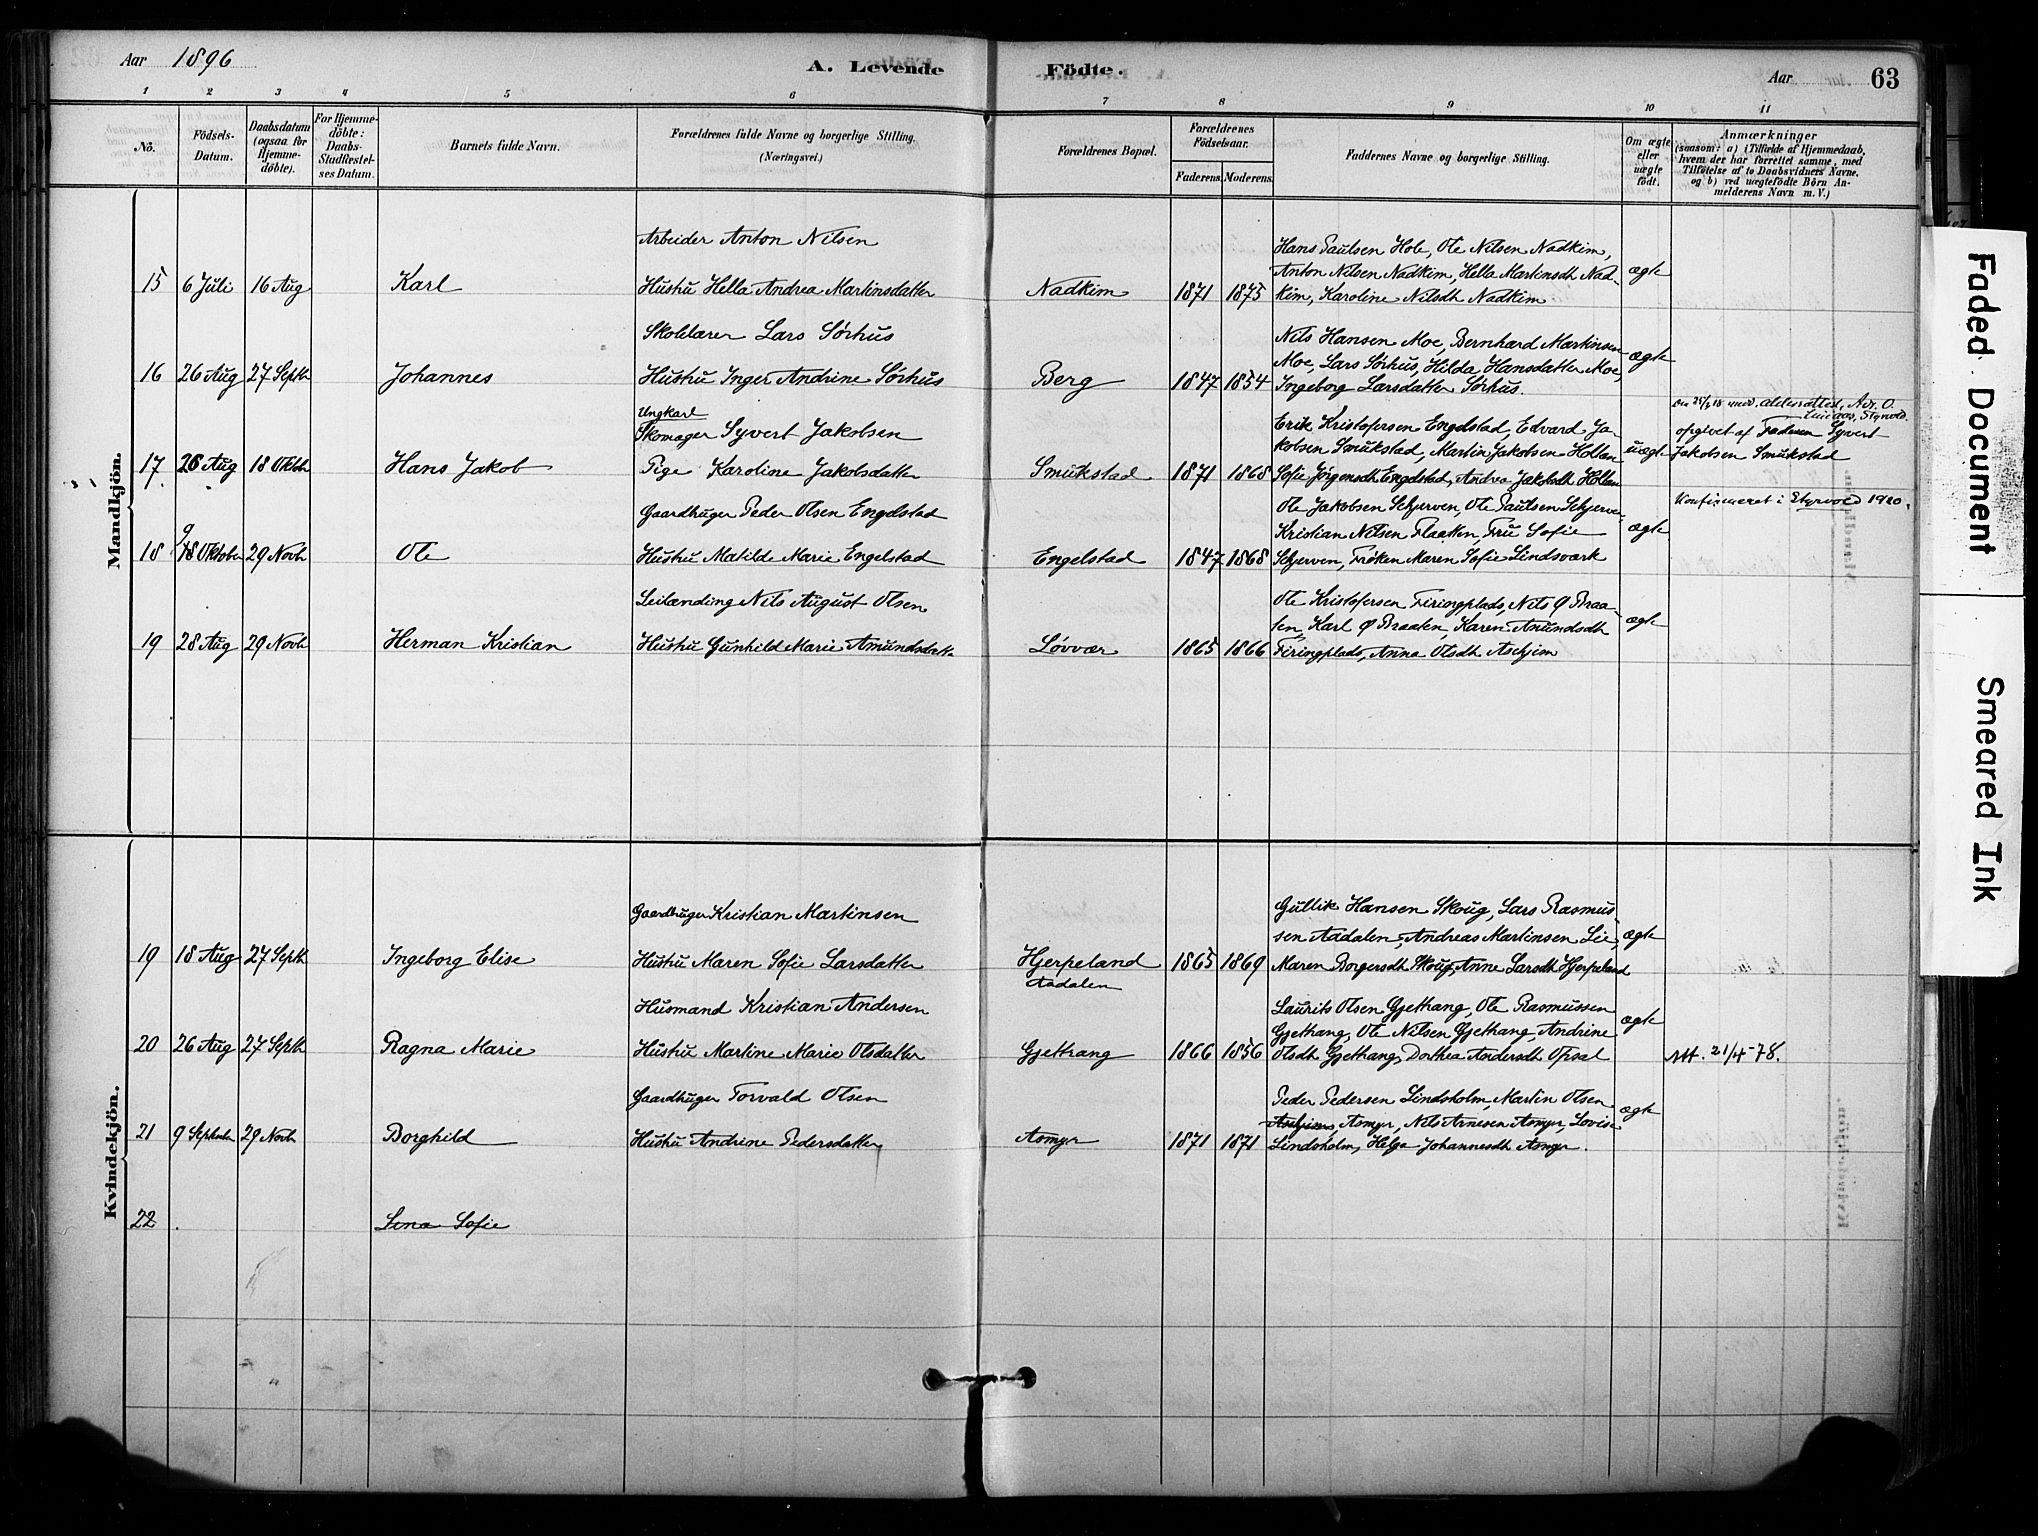 Aar 1896
A. Levende Födte.
Aar 63
1 2 3 4 5 6 7 8 9 10 11
No.
Födsels-Datum.
Daabsdatum (ogsaa for Hjemme-döbte).
For Hjemme-döbte: Daabs-Stadfæstel-ses Datum.
Barnets fulde Navn.
Forældrenes fulde Navne og borgerlige Stilling. (Næringsvei.)
Forældrenes Bopæl.
Forældrenes Födselsaar.
Faderens. Moderens.
Faddernes Navne og borgerlige Stilling.
Om ægte eller uægte født.
Anmærkninger
(saasom: a) i Tilfælde af Hjemmedaab,
hvem der har forrettet samme, med
Tilföielse af to Daabsvidners Navne,
og b) ved uægtefödte Börn An-
melderens Navn m. V.)
Mandkjön.
Arbeider Anton Nilsen
15 6 Juli 16 Aug Karl Hustru Hella Andrea Martinsdatter Nadkim 1871 1875
Hans Paulsen Hole, Ole Nilsen Nadkim,
Anton Nilsen Nadkim, Hella Martinsdt Nad-
kim, Karoline Nilsdt Nadkim
ægte
Skolelærer Lars Sørhus
16 26 Aug 27 Septb Johannes Hustru Inger Andrine Sørhus Berg 1847 1854
Nils Hansen Moe, Bernhard Martinsen
Moe, Lars Sørhus, Hilda Hansdatter Moe,
Ingeborg Larsdatter Sørhus.
ægte
Ungkarl
Skomager Syvert Jakobsen
17 26 Aug 18 Oktb Hans Jakob Pige Karoline Jakobsdatter Smukstad 1871 1868
Erik Kristofersen Engelstad, Edvard Ja-
kobsen Smukstad, Martin Jakobsen Hollan
Sofie Jörgensdt Engelstad, Andrea Jakobsdt Hollan
uægte
opgivet af Faderen Syvert
Jakobsen Smukstad
Konfirmeret i Styrvold 1920.
Gaardbruger Peder Olsen Engelstad
18 18 9 Oktober 29 Novb Ole Hustru Matilde Marie Engelstad Engelstad 1847 1868
Ole Jakobsen Schjerven Ole Paulsen Schjerve
Kristian Nilsen Flaaten, Fru Sofie
Schjerven, Frøken Maren Sofie Lindsværk
ægte
Leilænding Nils August Olsen
19 28 Aug 29 Novb Herman Kristian Hustru Gunhild Marie Amundsdatt Løvvær 1865 1866
Ole Kristofersen Firingplads, Nils Ø Braa-
ten, Karl Ø Braaten, Karen Amundsdt
Firingplads, Anna Olsdt Aschjim
ægte
Kvindekjön.
Gaardbruger Kristian Martinsen
19 18 Aug 27 Septb Ingeborg Elise Hustru Maren Sofie Larsdatter Hjerpeland 1865 1869
Aadalen
Gullik Hansen Skoug, Lars Rasmus-
sen Aadalen, Andreas Martinsen Lie,
Maren Borgersdt Skoug, Anne Larsdt Hjerpeland
ægte
Husmand Kristian Andersen
20 26 Aug 27 Septb Ragna Marie Hustru Martine Marie Olsdatter Gjettrang 1866 1856
Laurits Olsen Gjettrang, Ole Rasmussen
Gjettrang, Ole Nilsen Gjettrang, Andrine
Olsdt Gjettrang, Dorthea Andersdt Opsal
ægte
Att. 21/4-78.
Gaardbruger Torvald Olsen
21 9 Septemb 29 Novb Borghild Hustru Andrine Pedersdatter Asmyr 1871 1871
Peder Pedersen Lindsholm, Martin Olsen
Aschjim, Asmyr, Nils Arnesen Asmyr, Lovise
Lindsholm, Helga Johannesdt Asmyr.
ægte
22 Lena Sofie
Faded Document
Smeared Ink